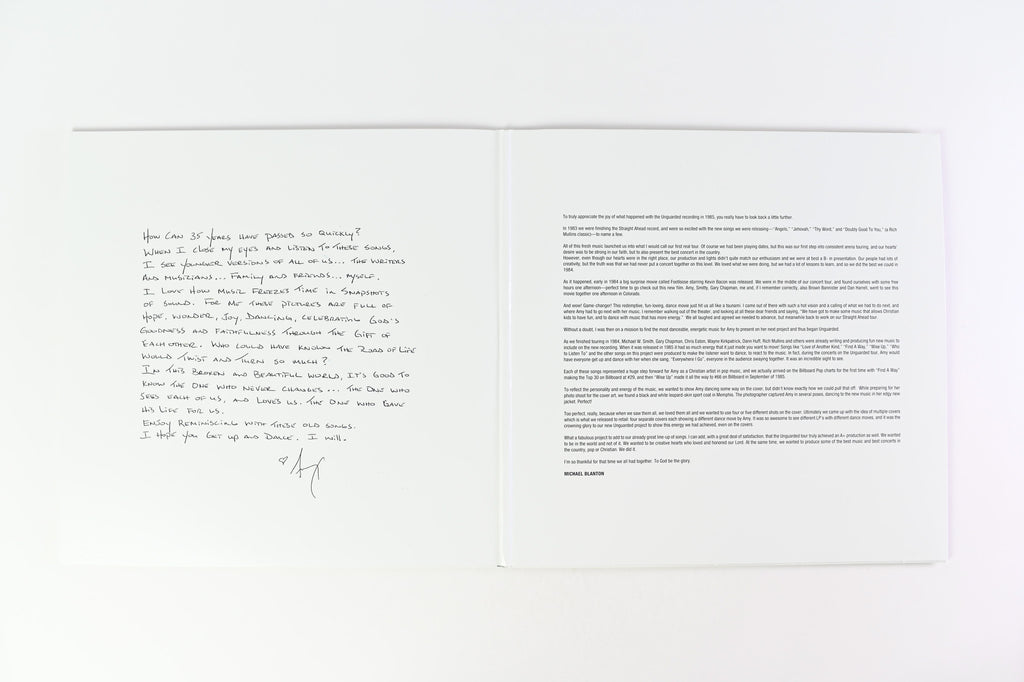 How Can 35 years have passed so quickly?
When I close my eyes and listen to these songs,
I see younger versions of all of us... the writers
and musicians... family and friends... myself.
I love how music freezes time in snapshots
of sound. For me these pictures are full of
hope, wonder, joy, dancing, celebrating God's
goodness and faithfulness through the gift of
each other. Who could have known the road of life
would twist and turn so much?
In this broken and beautiful world, it's good to
know the One who never changes... the One who
sees each of us, and loves us. The One who gave
His life for us.
Enjoy reminiscing with these old songs.
I hope you get up and dance. I will.
♡ Amy
To truly appreciate the joy of what happened with the Unguarded recording in 1985, you really have to look back a little further.
In 1983 we were finishing the Straight Ahead record, and were so excited with the new songs we were releasing—"Angels," "Jehovah," "Thy Word," and "Doubly Good To You," (a Rich
Mullins classic)—to name a few.
All of this fresh music launched us into what I would call our first real tour. Of course we had been playing dates, but this was our first step into consistent arena touring, and our hearts'
desire was to be strong in our faith, but to also present the best concert in the country.
However, even though our hearts were in the right place, our production and lights didn't quite match our enthusiasm and we were at best a B- in presentation. Our people had lots of
creativity, but the truth was that we had never put a concert together on this level. We loved what we were doing, but we had a lot of lessons to learn, and so we did the best we could in
1984.
As it happened, early in 1984 a big surprise movie called Footloose starring Kevin Bacon was released. We were in the middle of our concert tour, and found ourselves with some free
hours one afternoon—perfect time to go check out this new film. Amy, Smitty, Gary Chapman, me and, if I remember correctly, also Brown Bannister and Dan Harrell, went to see this
movie together one afternoon in Colorado.
And wow! Game-changer! This redemptive, fun-loving, dance movie just hit us all like a tsunami. I came out of there with such a hot vision and a calling of what we had to do next, and
where Amy had to go next with her music. I remember walking out of the theater, and looking at all these dear friends and saying, "We have got to make some music that allows Christian
kids to have fun, and to dance with music that has more energy." We all laughed and agreed we needed to advance, but meanwhile back to work on our Straight Ahead tour.
Without a doubt, I was then on a mission to find the most danceable, energetic music for Amy to present on her next project and thus began Unguarded.
As we finished touring in 1984, Michael W. Smith, Gary Chapman, Chris Eaton, Wayne Kirkpatrick, Dann Huff, Rich Mullins and others were already writing and producing fun new music to
include on the new recording. When it was released in 1985 it had so much energy that it just made you want to move! Songs like "Love of Another Kind," "Find A Way," "Wise Up," "Who
to Listen To" and the other songs on this project were produced to make the listener want to dance, to react to the music. In fact, during the concerts on the Unguarded tour, Amy would
have everyone get up and dance with her when she sang, "Everywhere I Go", everyone in the audience swaying together. It was an incredible sight to see.
Each of these songs represented a huge step forward for Amy as a Christian artist in pop music, and we actually arrived on the Billboard Pop charts for the first time with "Find A Way"
making the Top 30 on Billboard at #29, and then "Wise Up" made it all the way to #66 on Billboard in September of 1985.
To reflect the personality and energy of the music, we wanted to show Amy dancing some way on the cover, but didn't know exactly how we could pull that off. While preparing for her
photo shoot for the cover art, we found a black and white leopard-skin sport coat in Memphis. The photographer captured Amy in several poses, dancing to the new music in her edgy new
jacket. Perfect!
Too perfect, really, because when we saw them all, we loved them all and we wanted to use four or five different shots on the cover. Ultimately we came up with the idea of multiple covers
which is what we released to retail: four separate covers each showing a different dance move by Amy. It was so awesome to see different LP's with different dance moves, and it was the
crowning glory to our new Unguarded project to show this energy we had achieved, even on the covers.
What a fabulous project to add to our already great line-up of songs. I can add, with a great deal of satisfaction, that the Unguarded tour truly achieved an A+ production as well. We wanted
to be in the world and not of it. We wanted to be creative hearts who loved and honored our Lord. At the same time, we wanted to produce some of the best music and best concerts in
the country, pop or Christian. We did it.
I'm so thankful for that time we all had together. To God be the glory.
MICHAEL BLANTON